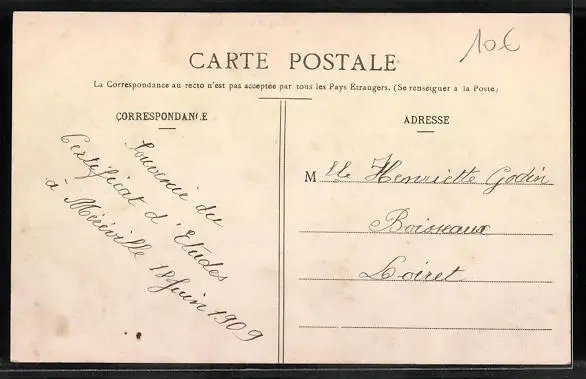 10€
CARTE POSTALE
La Correspondance au recto n'est pas acceptée par tous les Pays Étrangers. (Se renseigner à la Poste)
CORRESPONDANCE
Souvenir du
Certificat d'Etudes
à Méréville 18 Juin 1909
ADRESSE
Mlle Henriette Godin
Boisseaux
Loiret